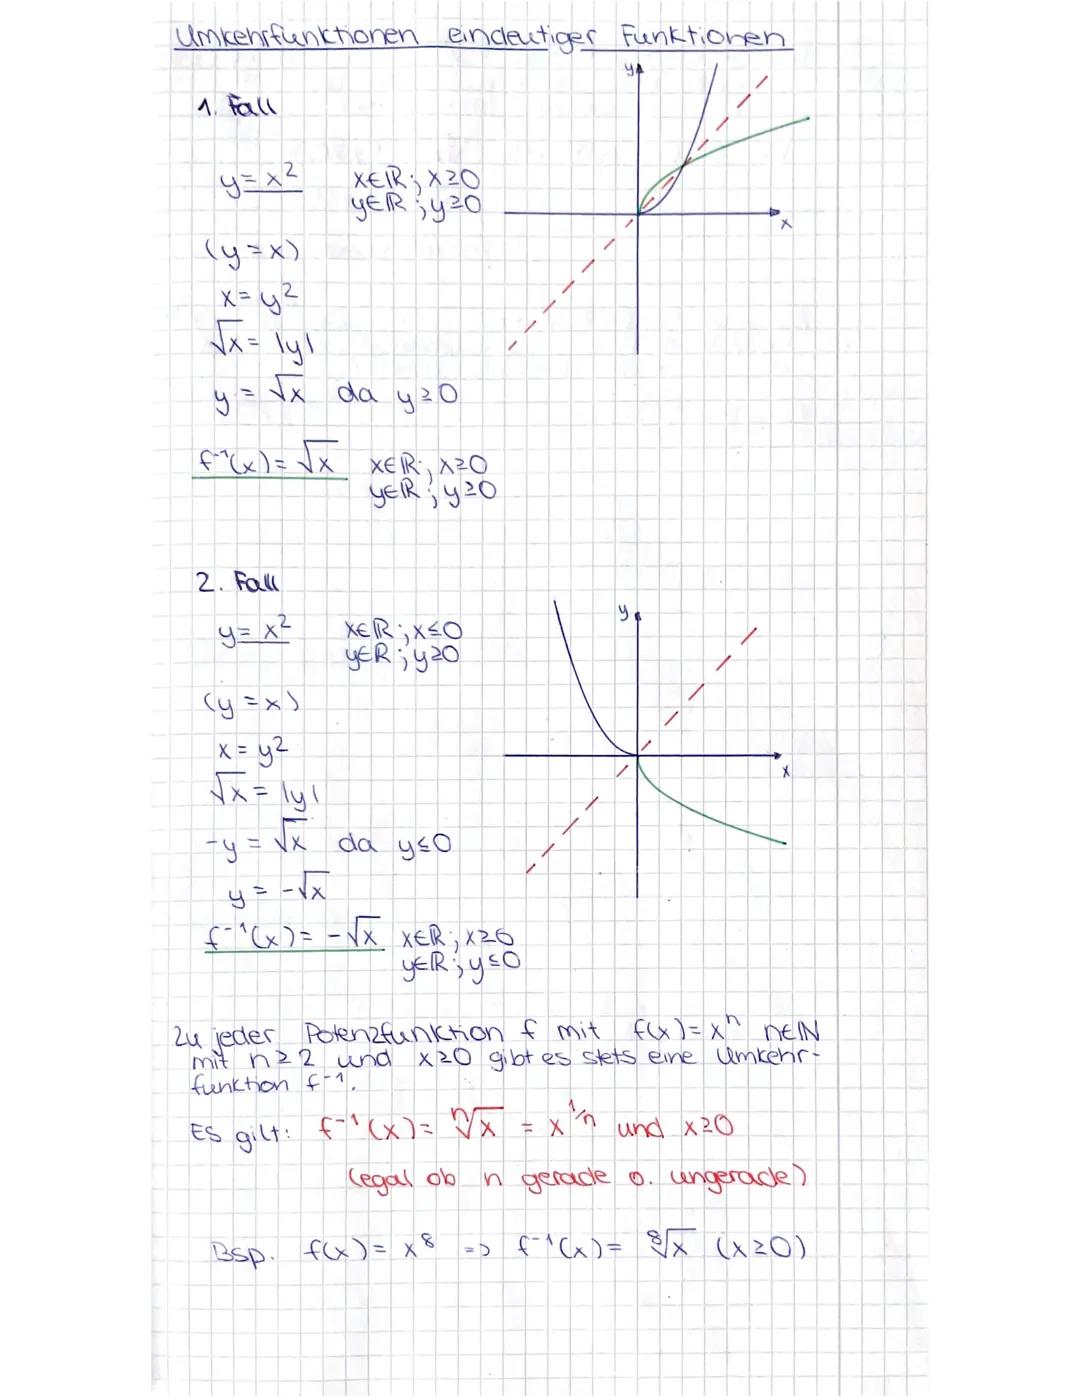 Umkehrfunktionen eindeutiger Funktionen
y
1. Fall
y = x² x∈ℝ; x≥0
y∈ℝ; y≥0
x
(y = x)
x = y²
√x = |y|
y = √x da y≥0
f⁻¹(x) = √x x∈ℝ; x≥0
y∈ℝ; y≥0
2. Fall
y
y = x² x∈ℝ; x≤0
y∈ℝ; y≥0
(y = x)
x = y²
x
√x = |y|
-y = √x da y≤0
y = -√x
f⁻¹(x) = -√x x∈ℝ; x≥0
y∈ℝ; y≤0
Zu jeder Potenzfunktion f mit f(x) = xⁿ n∈ℕ
mit n≥2 und x≥0 gibt es stets eine Umkehr-
funktion f⁻¹.
Es gilt: f⁻¹(x) = ⁿ√x = x^1/n und x≥0
(egal ob n gerade o. ungerade)
Bsp. f(x) = x⁸ => f⁻¹(x) = ⁸√x (x≥0)